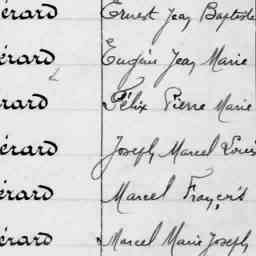 érard Ernest Jean Baptiste
érard Eugène Jean Marie
rard Félix Pierre Marie
érard Joseph Marcel Louis
érard Marcel François
érard Marcel Marie Joseph